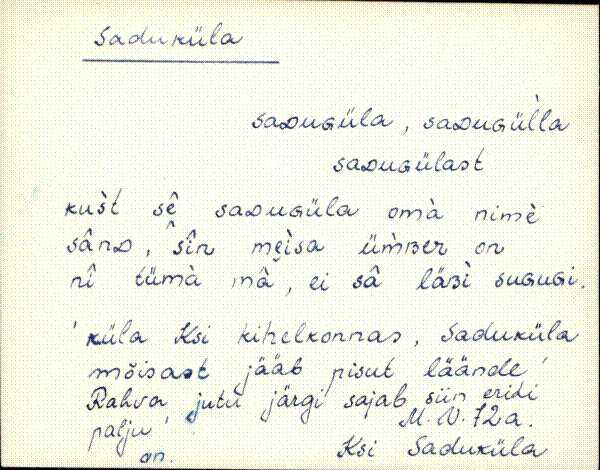 Saduküla
saDuGüla, saDuGül̀la
saDuGülast
kuš̀t sê saDuGüla omà nimè
sânD, sîn mei̯sa üm̀ʙer on
nî tümà mâ, ei sâ läʙì suGuGi.
'küla Ksi kihelkonnas, Saduküla
mõisast jääb pisut läände'
Rahva jutu järgi sajab siin eriti
palju'
M. N. 72 a.
on.
Ksi Saduküla